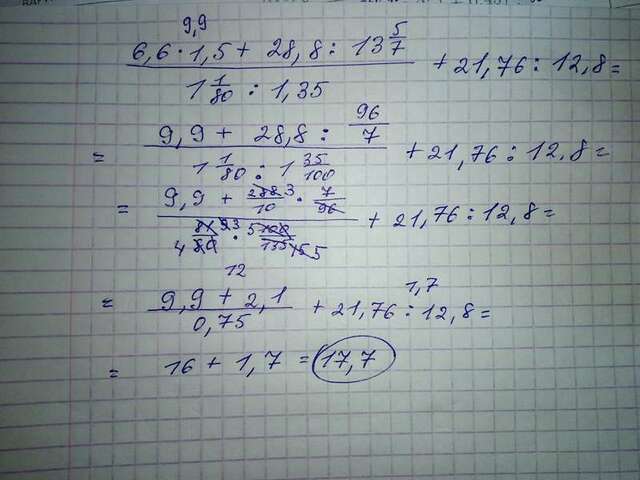 9,9
6,6 · 1,5 + 28,8 : 13 5/7
1 1/80 : 1,35
+ 21,76 : 12,8 =
= 9,9 + 28,8 : 96/7
1 1/80 : 1 35/100
+ 21,76 : 12,8 =
= 9,9 + 288/10 3 · 7/96
4 81/80 93 : 5 100/135 15 5
+ 21,76 : 12,8 =
12
= 9,9 + 2,1
0,75
1,7
+ 21,76 : 12,8 =
= 16 + 1,7 = 17,7